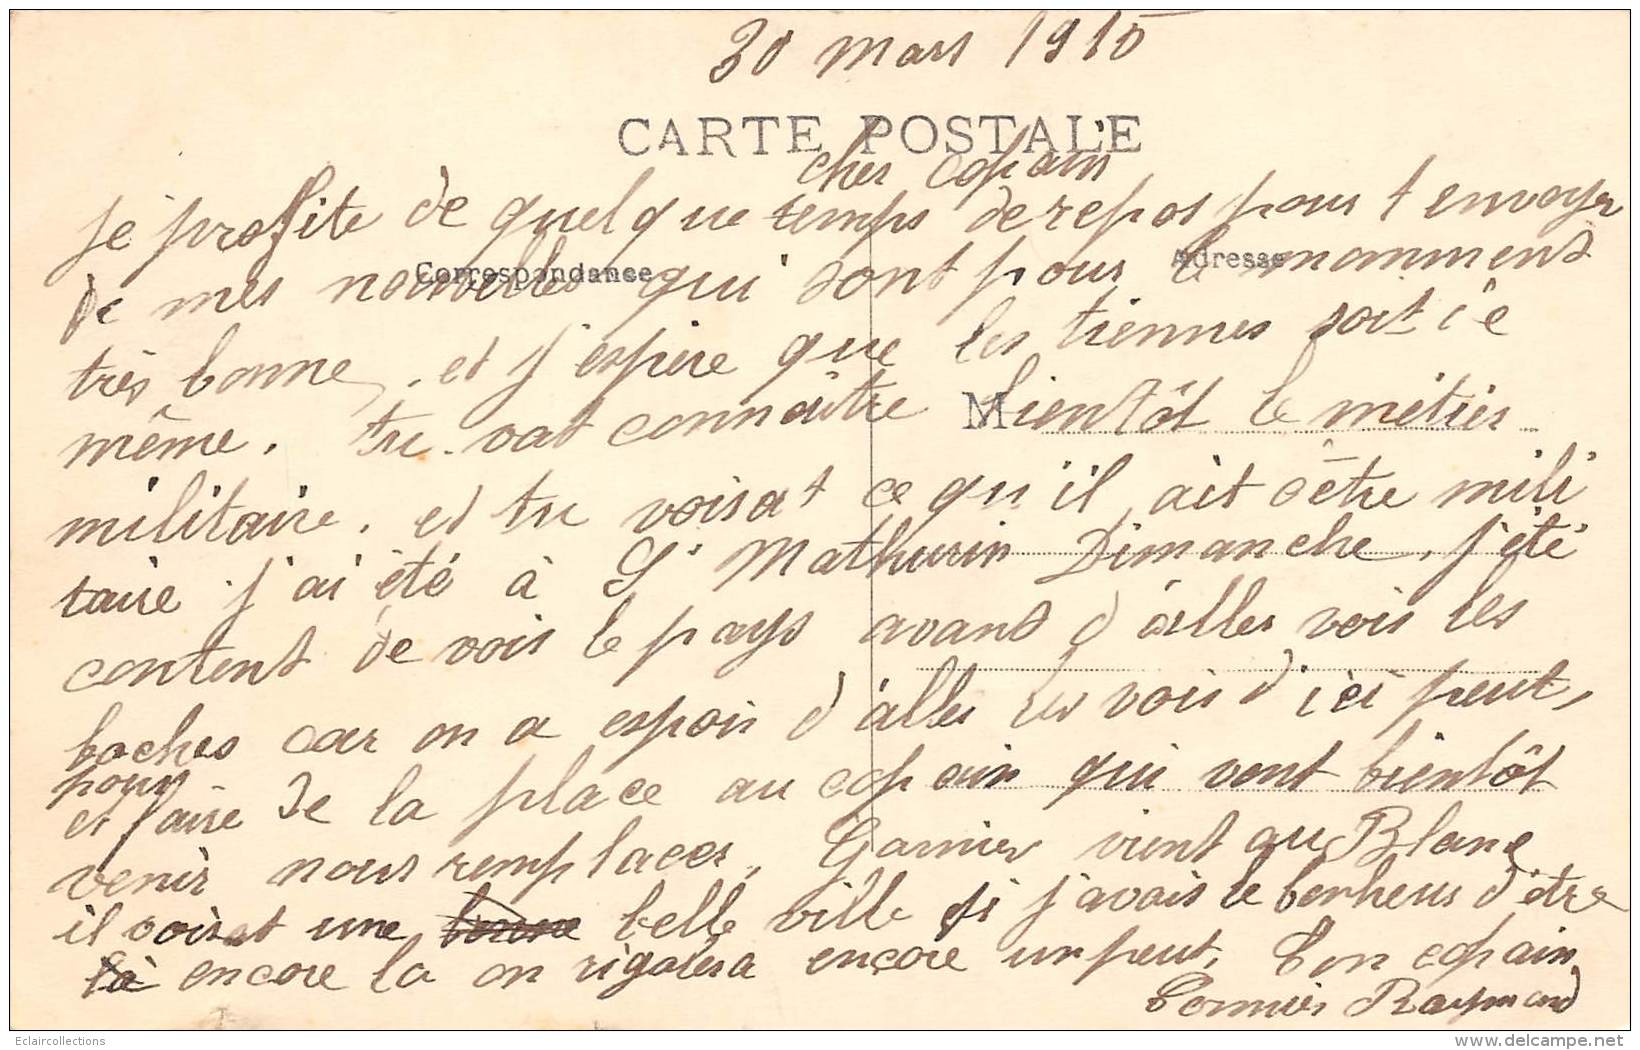 30 mars 1915
CARTE POSTALE
cher copain
je profite de quelque temps de repos pour t envoyer
Correspondance
Adresse
de mes nouvelles qui sont pour le momment
très bonne, et j'espère que les tiennes soit de
M
même. tu vat connaître bientôt le métier
militaire. et tu voisat ce qu'il ait d'être mili
taire j'ai été à St Mathurin Dimanche, j'été
content de voir le pays avant d'aller voir les
boches car on a espoir d'aller les voir d'ici peut,
pour
et faire de la place au copain qui vont bientôt
venir nous remplacer, Garnier vient au Blanc
il voirat une belle ville si j'avais le bonheur d'être
là encore la on rigolera encore un peut. Ton copain
Cormier Raymond
Eclaircollections
www.delcampe.net